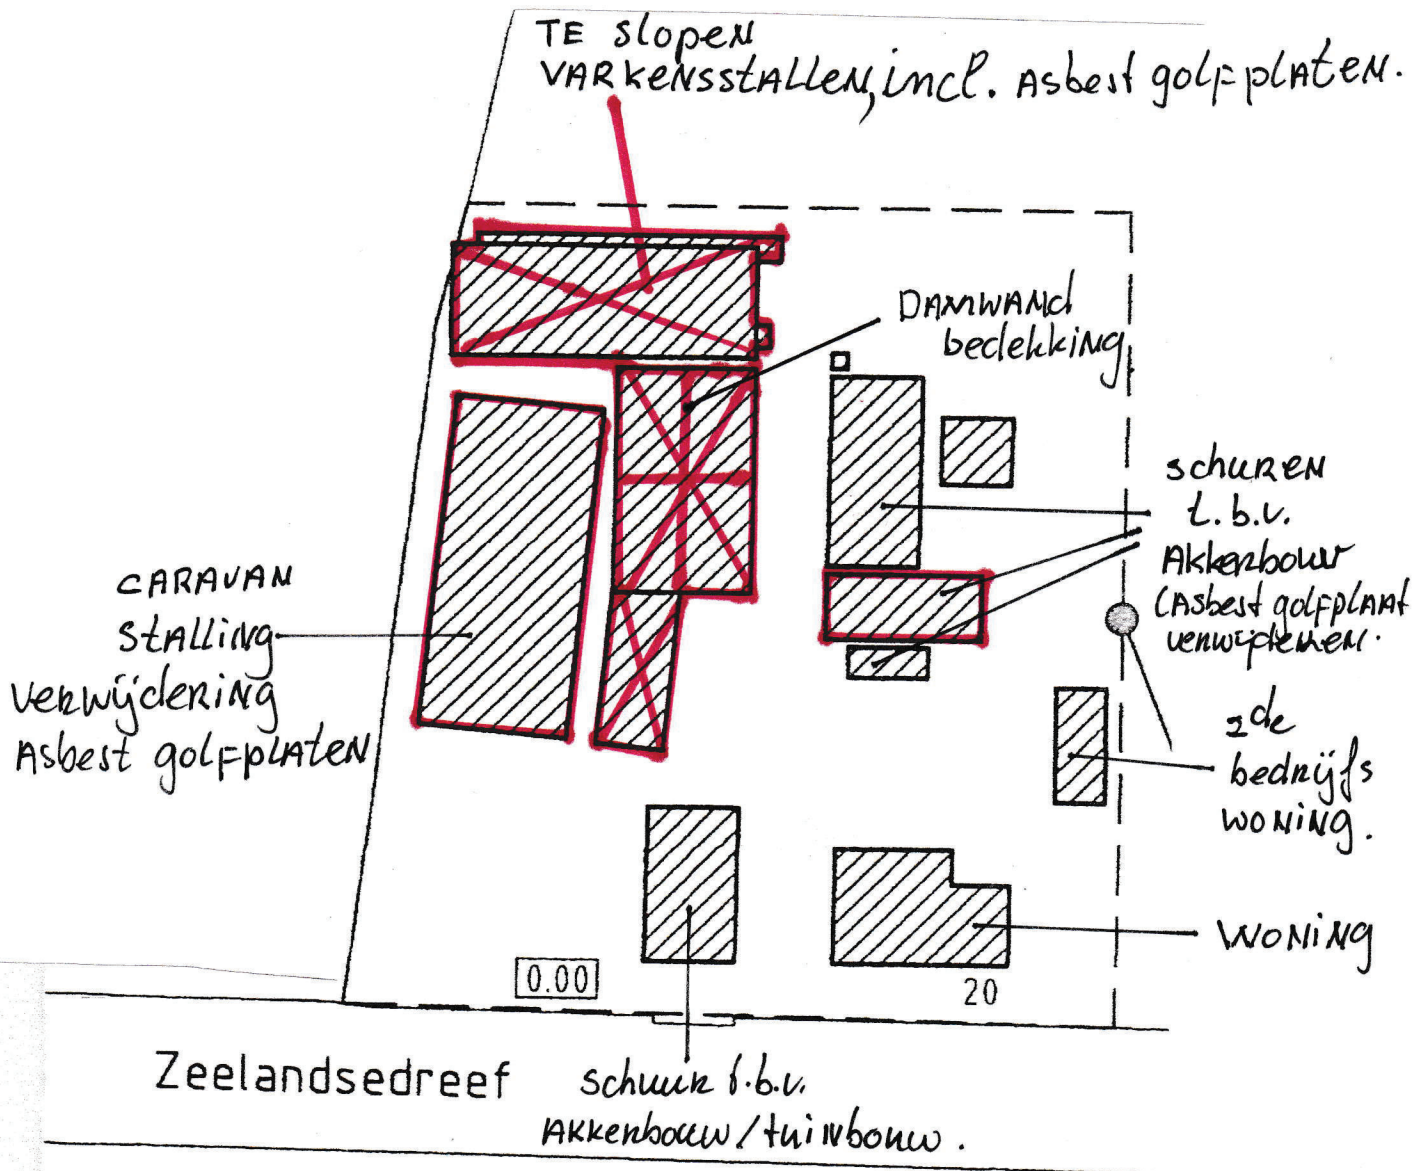 TE slopen
VARKENSSTALLEN, incl. Asbest golfplaten.
DAMWAND
bedekking
schuren
t.b.v.
Akkerbouw
(Asbest golfplaat
verwijderen.
CARAVAN
Stalling
verwijdering
Asbest golfplaten
2de
bedrijfs
woning.
WONING
0.00
20
Zeelandsedreef
schuur t.b.v.
Akkerbouw/tuinbouw.